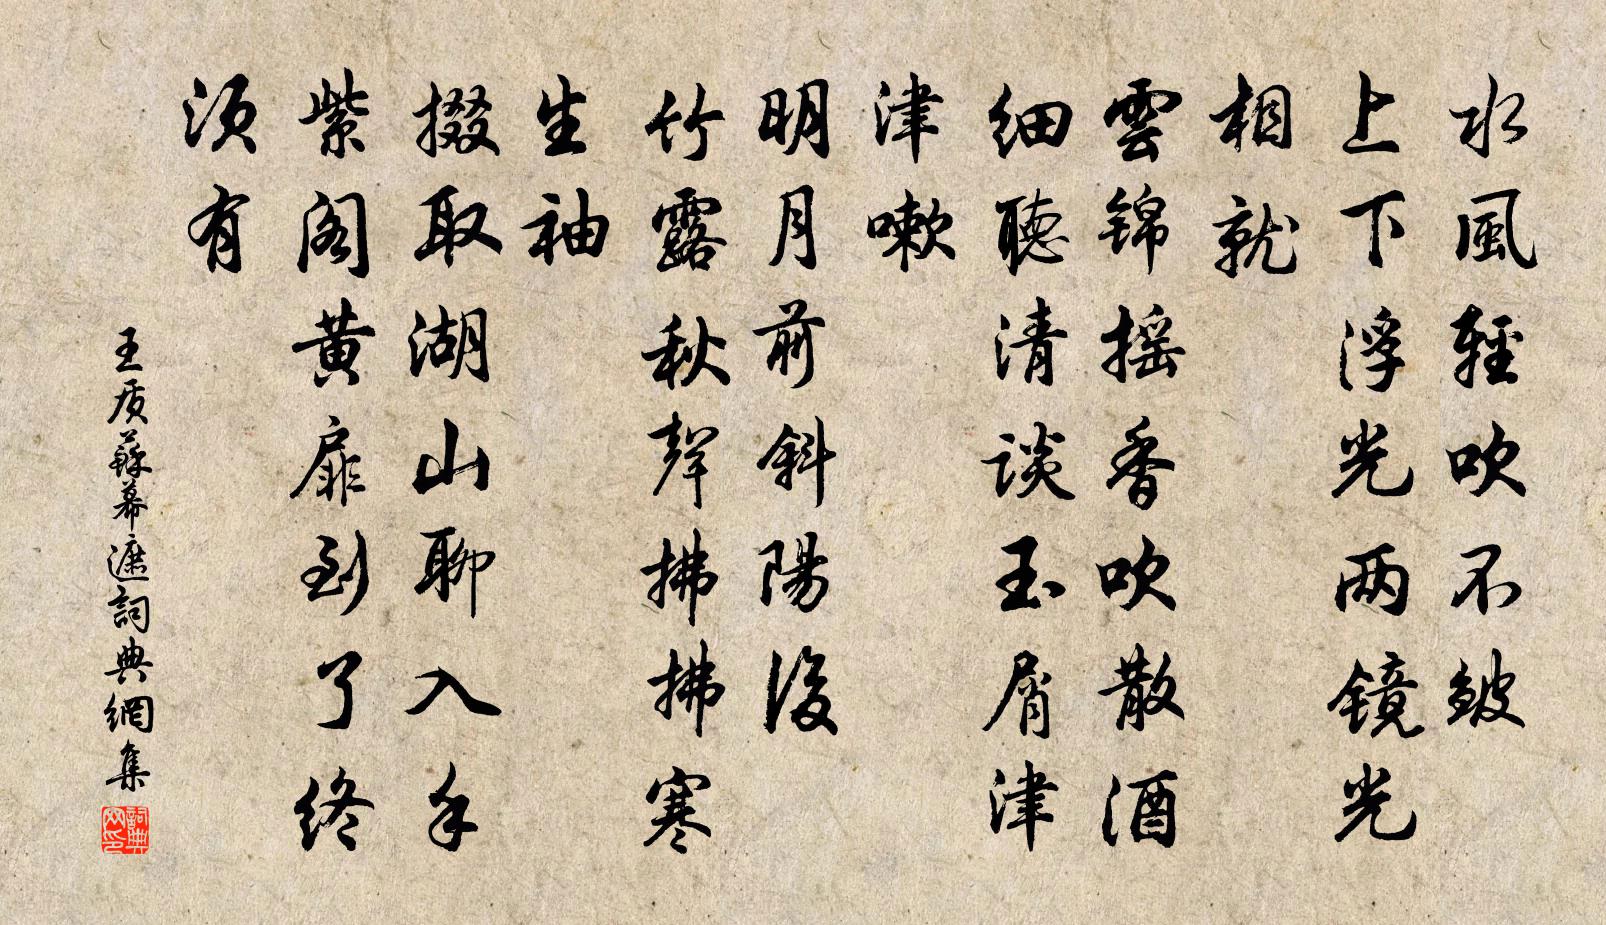 水風輕吹不皱
上下浮光两镜光
相就
雲錦摇香吹散酒
細聽清談玉屑津
津嗽
明月前斜陽後
竹露秋聲拂拂寒
生袖
掇取湖山聊入手
紫阁黄扉到了终
須有
王质蘇幕遮詞典網集
詞典网印